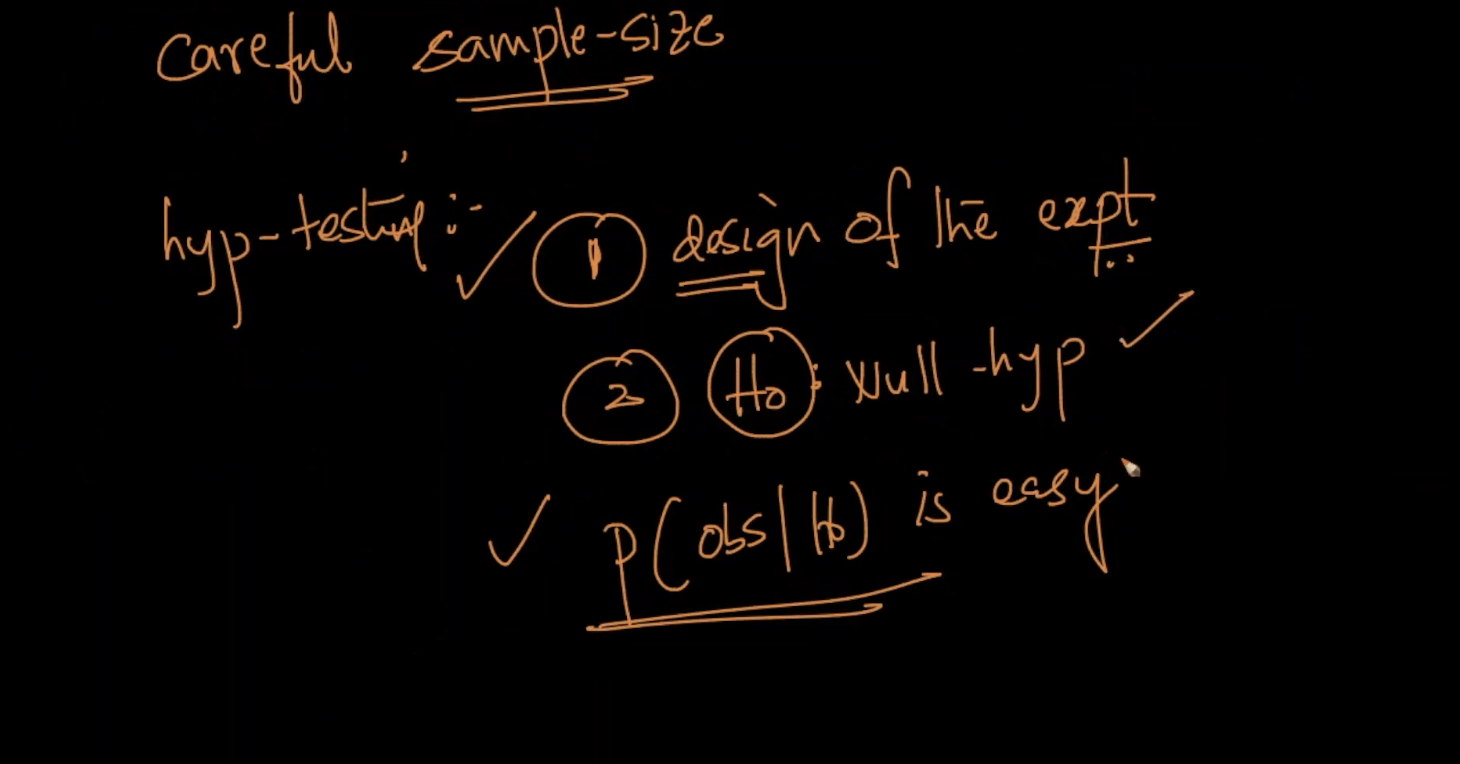 Careful sample-size
hyp-testing :- ✓ 1 design of the expt
2 H0: Null-hyp ✓
✓ P(obs|H0) is easy